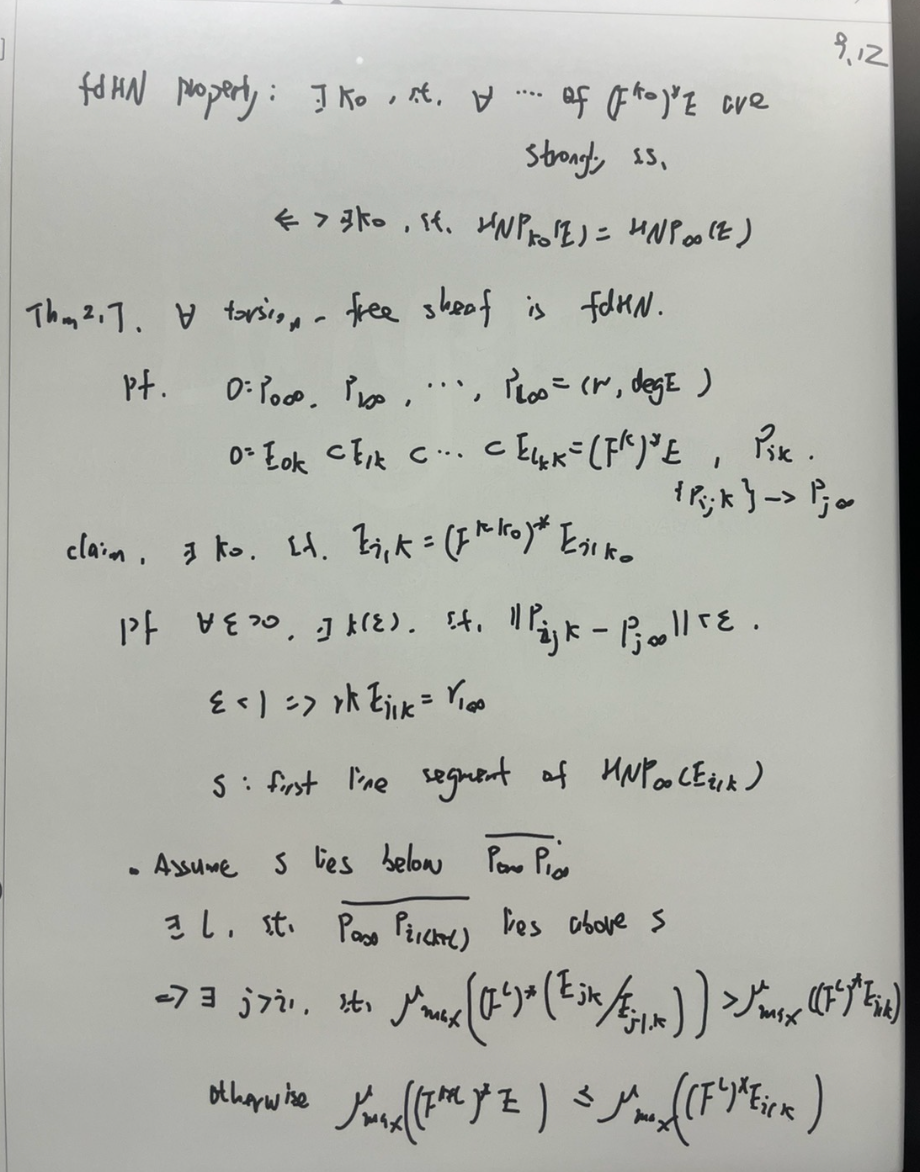 9.12
fdHN property: ∃ k₀, s.t. ∀ ⋯ of (F^{k₀})^*E are
strongly ss.
<=> ∃k₀, s.t. HNP_{k₀}(E) = HNP_∞(E)
Thm 2.7. ∀ torsion-free sheaf is fdHN.
pf. 0=P_{0∞}, P_{1∞}, ⋯, P_{l∞} = (r, deg E)
0=E_{0k} ⊂ E_{1k} ⊂ ⋯ ⊂ E_{l_k k} = (F^k)^*E , P_{ik}.
{P_{i_j k}} -> P_{j∞}
claim. ∃ k₀. s.t. E_{i_1 k} = (F^{k-k₀})^* E_{i_1 k₀}
pf ∀ ε>0. ∃ k(ε). s.t. ||P_{i_j k} - P_{j∞}|| < ε.
ε < 1 => rk E_{i_1 k} = r_{1∞}
S : first line segment of HNP_∞(E_{i_1 k})
• Assume S lies below \overline{P_{0∞} P_{1∞}}
∃ l. s.t. \overline{P_{0∞} P_{i_1(k+l)}} lies above S
=> ∃ j>i_1 s.t. μ_max((F^l)^*(E_{jk}/E_{j-1,k})) > μ_max((F^l)^*E_{i_1 k})
otherwise μ_max((F^{k+l})^*E) ≤ μ_max((F^l)^*E_{i_1 k})